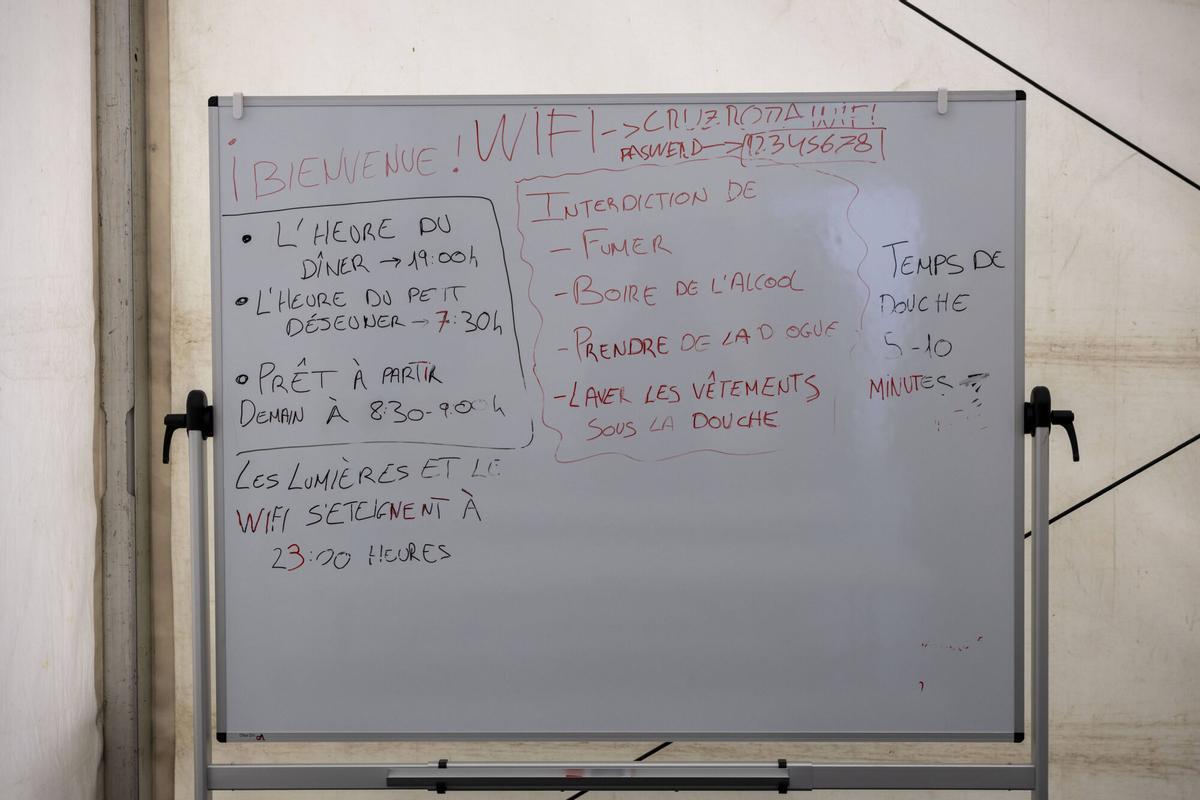 ¡BIENVENUE! WIFI -> CRUZ ROJA WIFI
PASWERD -> 12345678
• L'HEURE DU
DÎNER → 19:00h
• L'HEURE DU PETIT
DÉJEUNER → 7:30h
• PRÊT À PARTIR
DEMAIN À 8:30-9:00h
LES LUMIÈRES ET LE
WIFI S'ETEIGNENT À
23:00 HEURES
INTERDICTION DE
- FUMER
- BOIRE DE L'ALCOOL
- PRENDRE DE LA D OGUE
- LAVER LES VÊTEMENTS
SOUS LA DOUCHE
TEMPS DE
DOUCHE
5-10
MINUTES